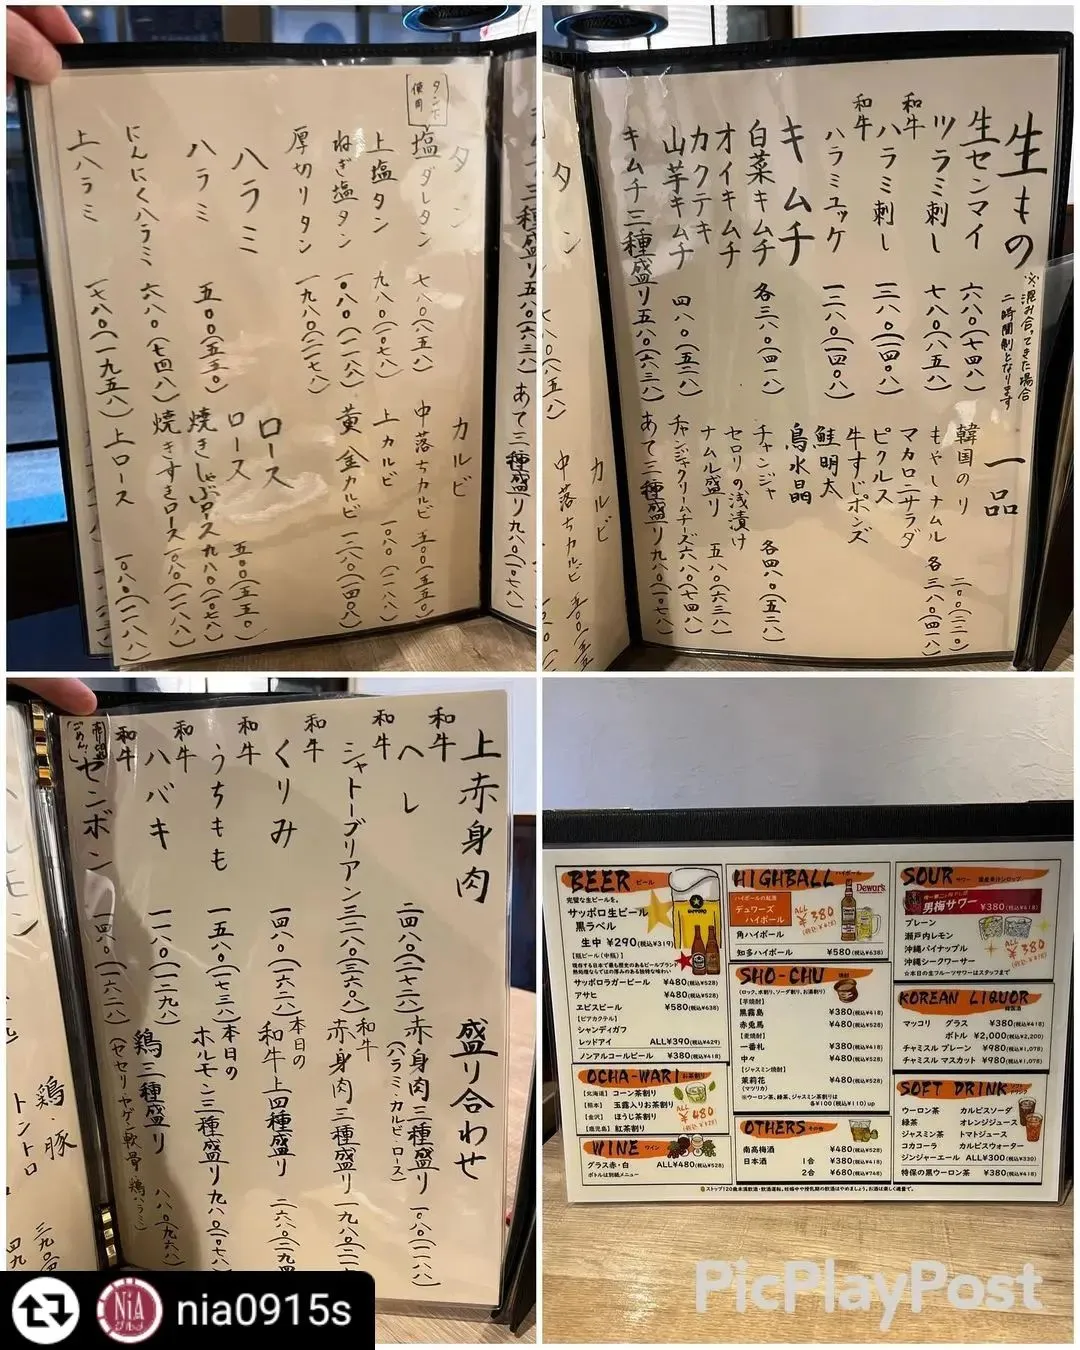 タン
タン下使用
塩ダレタン 七八〇(八五八)
上塩タン 九八〇(一〇七八)
ねぎ塩タン 一〇八〇(一一八八)
厚切りタン 一九八〇(二一七八)
ハラミ
ハラミ 五〇〇(五五〇)
にんにくハラミ 六八〇(七四八)
上ハラミ 一七八〇(一九五八)
カルビ
中落ちカルビ 五〇〇(五五〇)
上カルビ 一〇八〇(一一八八)
黄金カルビ 一二八〇(一四〇八)
ロース
ロース 五〇〇(五五〇)
焼きしゃぶロース 九八〇(一〇七八)
焼きすきロース 一〇八〇(一一八八)
上ロース 一〇八〇(一一八八)
生もの
※混み合ってきた場合
二時間制となります
生センマイ 六八〇(七四八)
ツラミ刺し 七八〇(八五八)
和牛ハラミ刺し 一二八〇(一四〇八)
和牛ハラミユッケ 一二八〇(一四〇八)
キムチ
白菜キムチ 各三八〇(四一八)
オイキムチ
カクテキ
山芋キムチ 四八〇(五二八)
キムチ三種盛り 五八〇(六三八)
一品
韓国のり 二〇〇(二二〇)
もやしナムル 各三八〇(四一八)
マカロニサラダ
ピクルス
牛すじポンズ
鮭明太
鳥水晶
チャンジャ 各四八〇(五二八)
セロリの浅漬け
ナムル盛り 五八〇(六三八)
チャンジャクリームチーズ 六八〇(七四八)
あて三種盛り 九八〇(一〇七八)
タン
カルビ
中落ちカルビ
上赤身肉
和牛ヘレ 二四八〇(二七二八)
和牛シャトーブリアン 三二八〇(三六〇八)
和牛くりみ 一四八〇(一六二八)
和牛うちもも 一五八〇(一七三八)
和牛ハバキ 一一八〇(一二九八)
和牛センボン 一四八〇(一六二八)
盛り合わせ
赤身肉三種盛り 一〇八〇(一一八八)
(ハラミ・カルビ・ロース)
和牛赤身肉三種盛り 一九八〇(二一
本日の和牛上四種盛り 二六八〇(二九四
本日のホルモン三種盛り 九八〇(一〇七八)
鶏三種盛り 八八〇(九六八)
(セセリ・ヤゲン軟骨・鶏ハラミ)
鶏・豚
トントロ
BEER ビール
完璧な生ビールを。
サッポロ生ビール
黒ラベル
生中 ¥290(税込¥319)
【瓶ビール(中瓶)】
サッポロラガービール ¥480(税込¥528)
アサヒ ¥480(税込¥528)
ヱビスビール ¥580(税込¥638)
【ビアカクテル】
シャンディガフ
レッドアイ ALL¥390(税込¥429)
ノンアルコールビール ¥380(税込¥418)
OCHA-WARI お茶割り
【北海道】コーン茶割り
【熊本】玉露入りお茶割り
【金沢】ほうじ茶割り
【鹿児島】紅茶割り
ALL ¥480 (税込¥528)
WINE ワイン
グラス赤・白 ALL¥480(税込¥528)
ボトルは別紙メニュー
HIGHBALL ハイボール
ハイボールの紅茶
デュワーズ
ハイボール
Dewar's
角ハイボール
ALL ¥380 (税込¥418)
知多ハイボール ¥580(税込¥638)
SHO-CHU 焼酎
(ロック、水割り、ソーダ割り、お湯割り)
【芋焼酎】
黒霧島 ¥380(税込¥418)
赤兎馬 ¥480(税込¥528)
【麦焼酎】
一番札 ¥380(税込¥418)
中々 ¥480(税込¥528)
【ジャスミン焼酎】
茉莉花 ¥480(税込¥528)
(マツリカ)
※ウーロン茶、緑茶、ジャスミン茶割りは
各¥100(税込¥110)up
OTHERS その他
南高梅酒 ¥480(税込¥528)
日本酒 1合 ¥380(税込¥418)
2合 ¥680(税込¥748)
SOUR サワー 国産果汁シロップ
男梅サワー ¥380(税込¥418)
プレーン
瀬戸内レモン
沖縄パイナップル
沖縄シークワーサー
ALL ¥380 (税込¥418)
☆本日の生フルーツサワーはスタッフまで
KOREAN LIQUOR 韓国酒
マッコリ グラス ¥380(税込¥418)
ボトル ¥2,000(税込¥2,200)
チャミスル プレーン ¥980(税込¥1,078)
チャミスル マスカット ¥980(税込¥1,078)
SOFT DRINK ソフトドリンク
ウーロン茶 カルピスソーダ
緑茶 オレンジジュース
ジャスミン茶 トマトジュース
コカコーラ カルピスウォーター
ジンジャーエール ALL¥300(税込¥330)
特保の黒ウーロン茶 ¥380(税込¥418)
ストップ!20歳未満飲酒・飲酒運転。妊娠中や授乳期の飲酒はやめましょう。お酒は楽しく適量で。
PicPlayPost
NiA
nia0915s